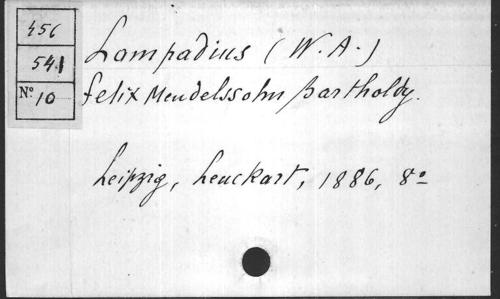 456
541
Nº 10
Lampadius (W. A.)
Felix Mendelssohn Bartholdy.
Leipzig, Leuckart, 1886, 8º